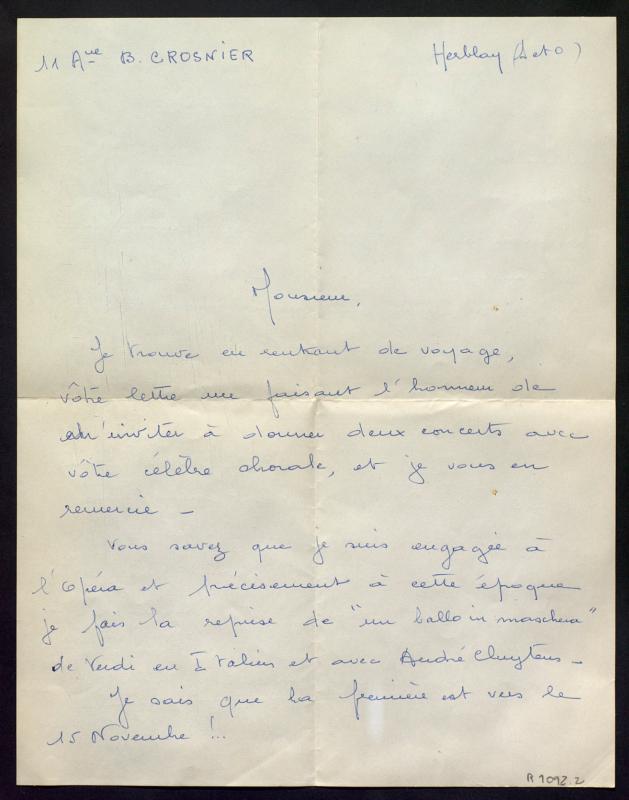 11 Aue B. CROSNIER
Herblay (S et O)
Monsieur,
Je trouve en rentrant de voyage,
vôtre lettre me faisant l'honneur de
m'inviter à donner deux concerts avec
vôtre célèbre chorale, et je vous en
remercie -
Vous savez que je suis engagée à
l'Opéra et précisement à cette époque
je fais la reprise de "un ballo in maschera"
de Verdi en Italien et avec André Cluytens -
Je sais que la première est vers le
15 Novembre !..
R 1092.2